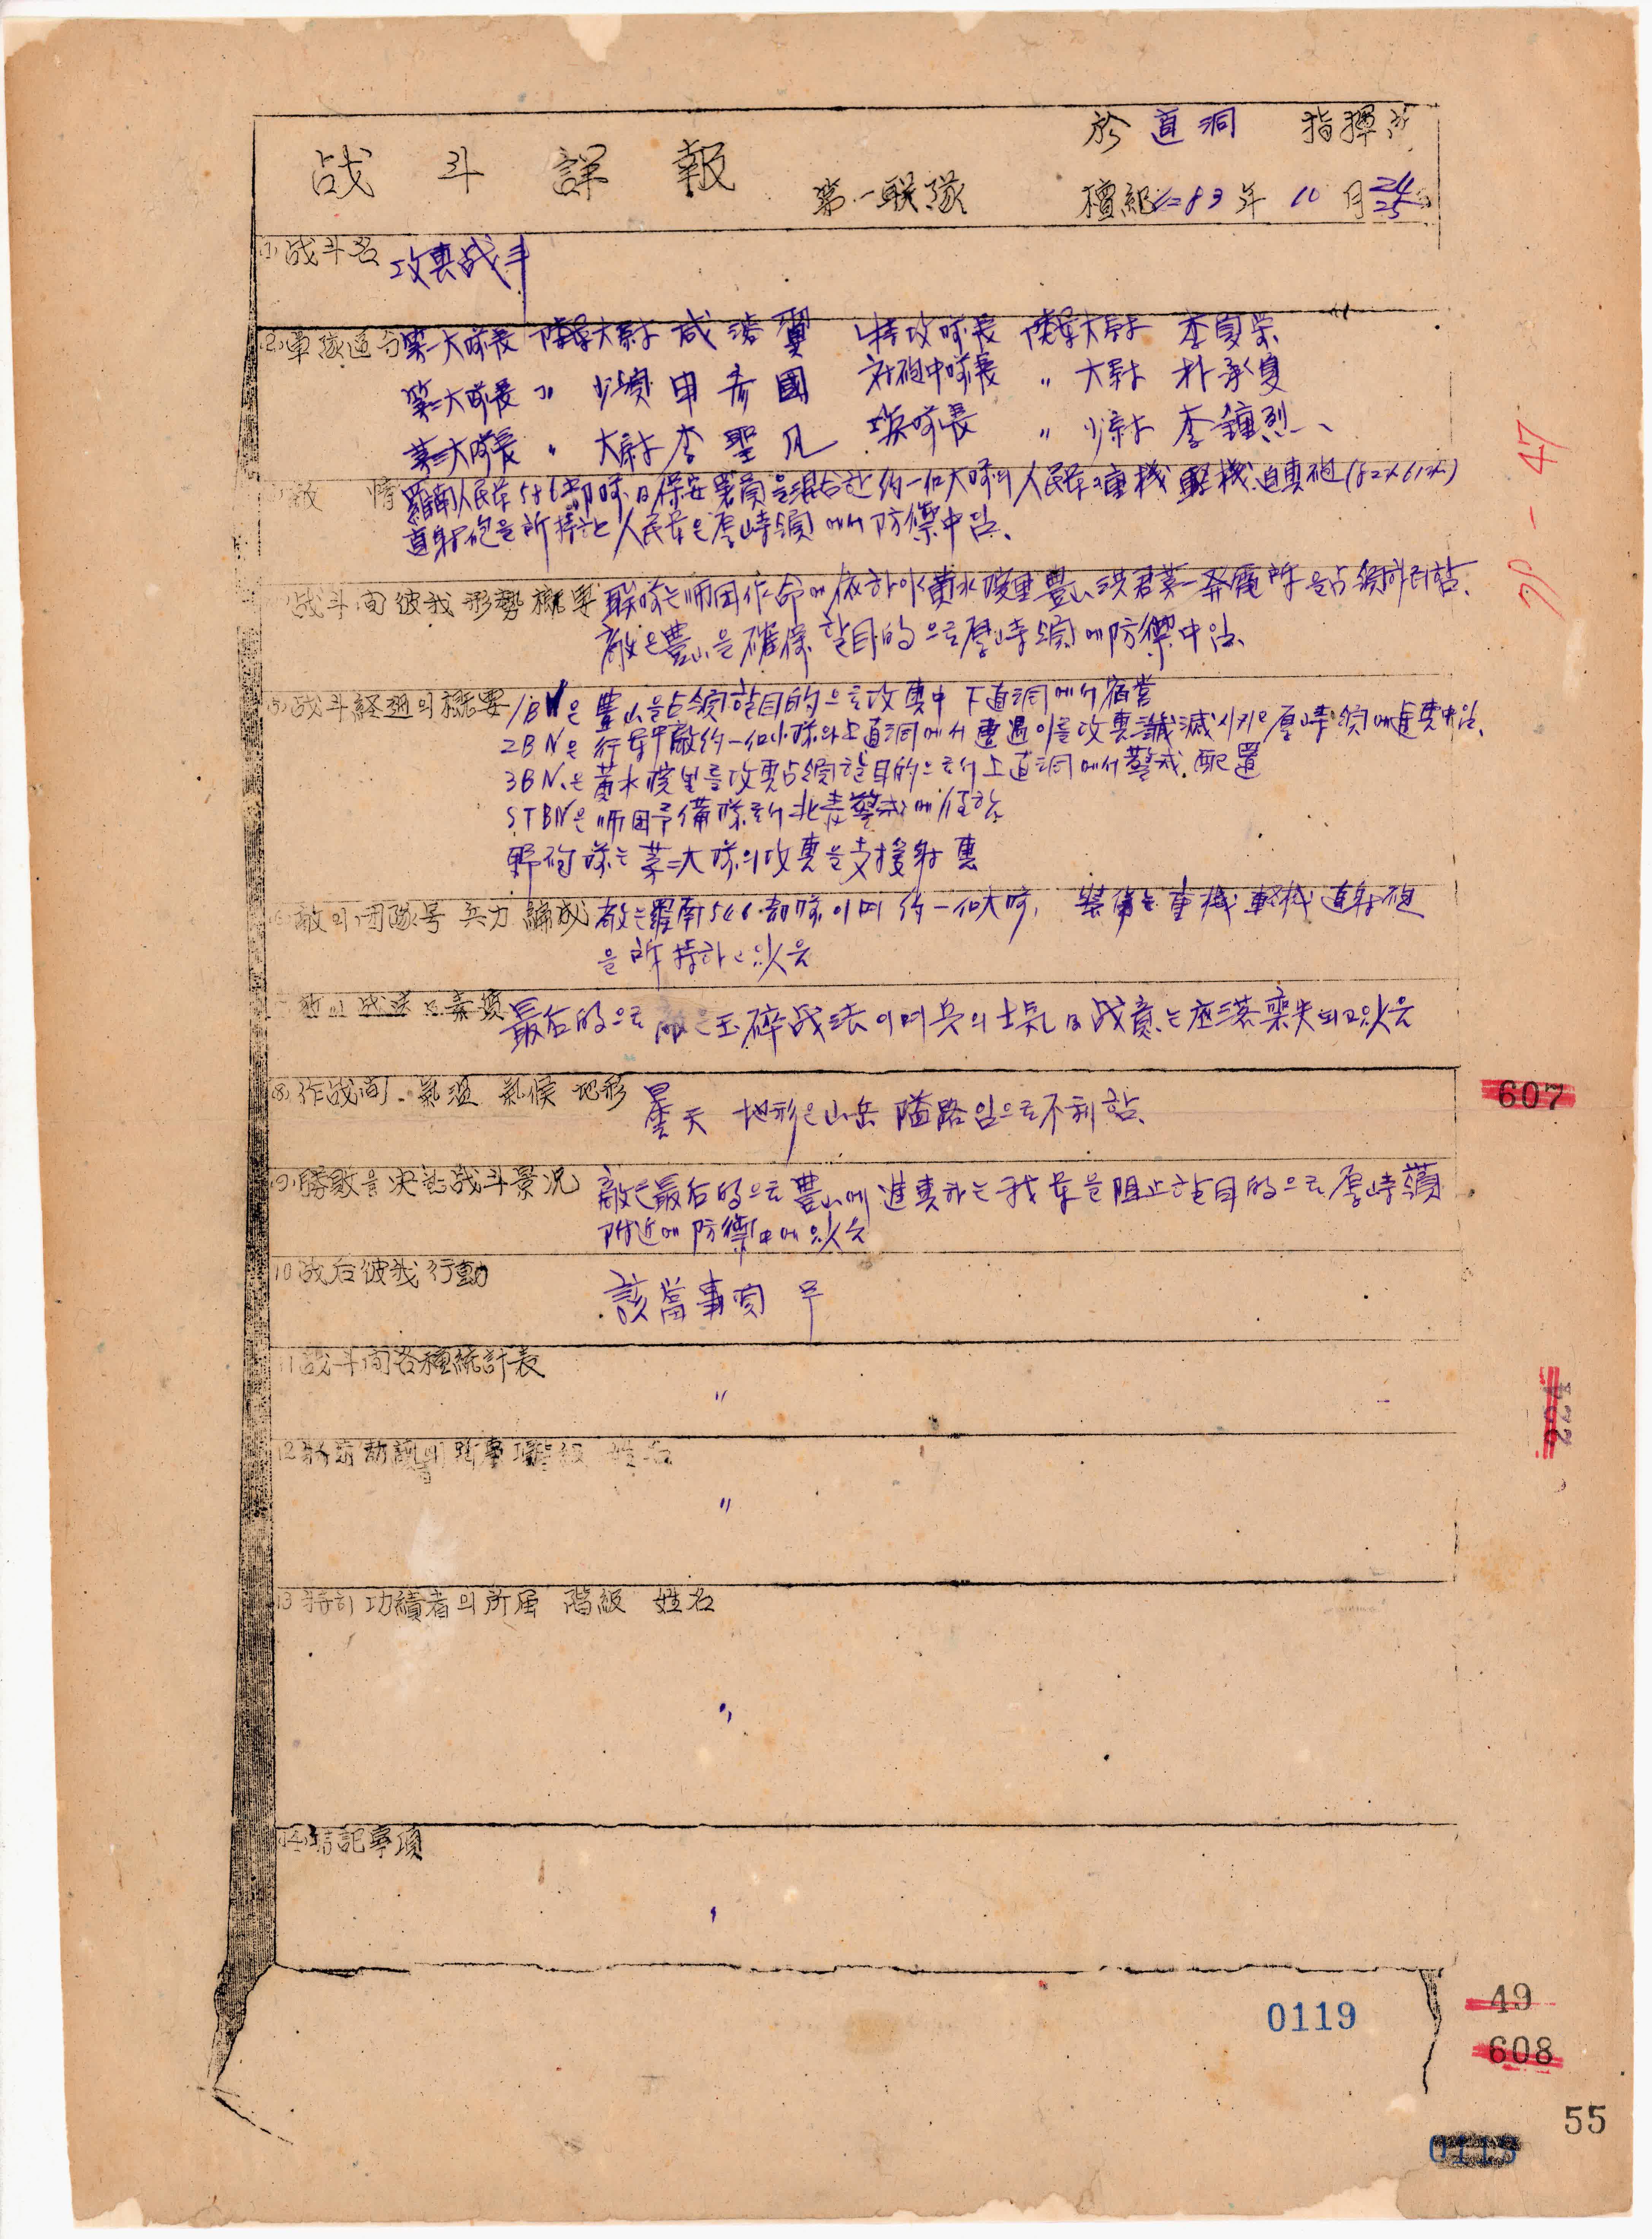 於 直洞 指揮所
战斗詳報
第一联隊 檀紀4283年 10月 24 25日
(1) 战斗名 攻擊战斗
(2) 軍隊區分 第一大隊長 陸軍大尉 咸 翼 特攻隊長 陸軍大尉 李夏榮
第二大隊長 〃 少領 申 秀 國 対砲中隊長 〃 大尉 朴承夏
第三大隊長 〃 大尉 李 聖 凡 瑛隊長 〃 少尉 李鍾烈
(3) 敵 情 羅南人民军546部隊 及 保安署員을 混合한 約一個大隊의 人民군 重機 輕機 迫擊砲(82粍 61粍)
直射砲를 所持한 人民군은 厚峙領에서 防禦中임.
战斗间 彼我 形勢 概要 联隊는 师团作命에 依하야 黃水院里 豊山 洪君第一発電所을 占領하려함.
敵은 豊山을 確保할 目的으로 厚峙領에 防禦中임.
(5) 战斗経過의 概要 1BN은 豊山을 占領할 目的으로 攻擊中 下直洞에서 宿营
2BN은 行군中 敵 約一個小隊와 上直洞에서 遭遇 이를 攻擊 殲滅시키고 厚峙領에 進擊中임.
3BN.은 黃水院里를 攻擊占領할 目的으로서 上直洞에서 警戒.配置
STBN은 师团予備隊로서 北靑警戒에 任함
野砲隊는 第二大隊의 攻擊을 支援射擊
(6) 敵의 团隊号 兵力 編成 敵은 羅南546部隊이며 約一個大隊, 裝備는 重機 輕機 直射砲
을 所持하고 있음
敵의 战法 及 素質 最后的으로 敵은 玉碎战法이며 兵의 士気 及 战意는 座落 喪失되고있음
(8) 作战间. 氣温 氣候 地形 曇天 地形은 山岳 隘路임으로 不利함.
(9) 勝敗를 決한 战斗景况 敵은 最后的으로 豊山에 進擊하는 我군을 阻止할 目的으로 厚峙嶺
附近에 防禦中에 있음
10 战后彼我行動 該當事項 무
11 战斗间各種統計表 〃
12 階級 姓名
〃
13 特히 功績者의 所属 階級 姓名
〃
記事項
〃
70-47
607
224
0119
49
608
55
0113